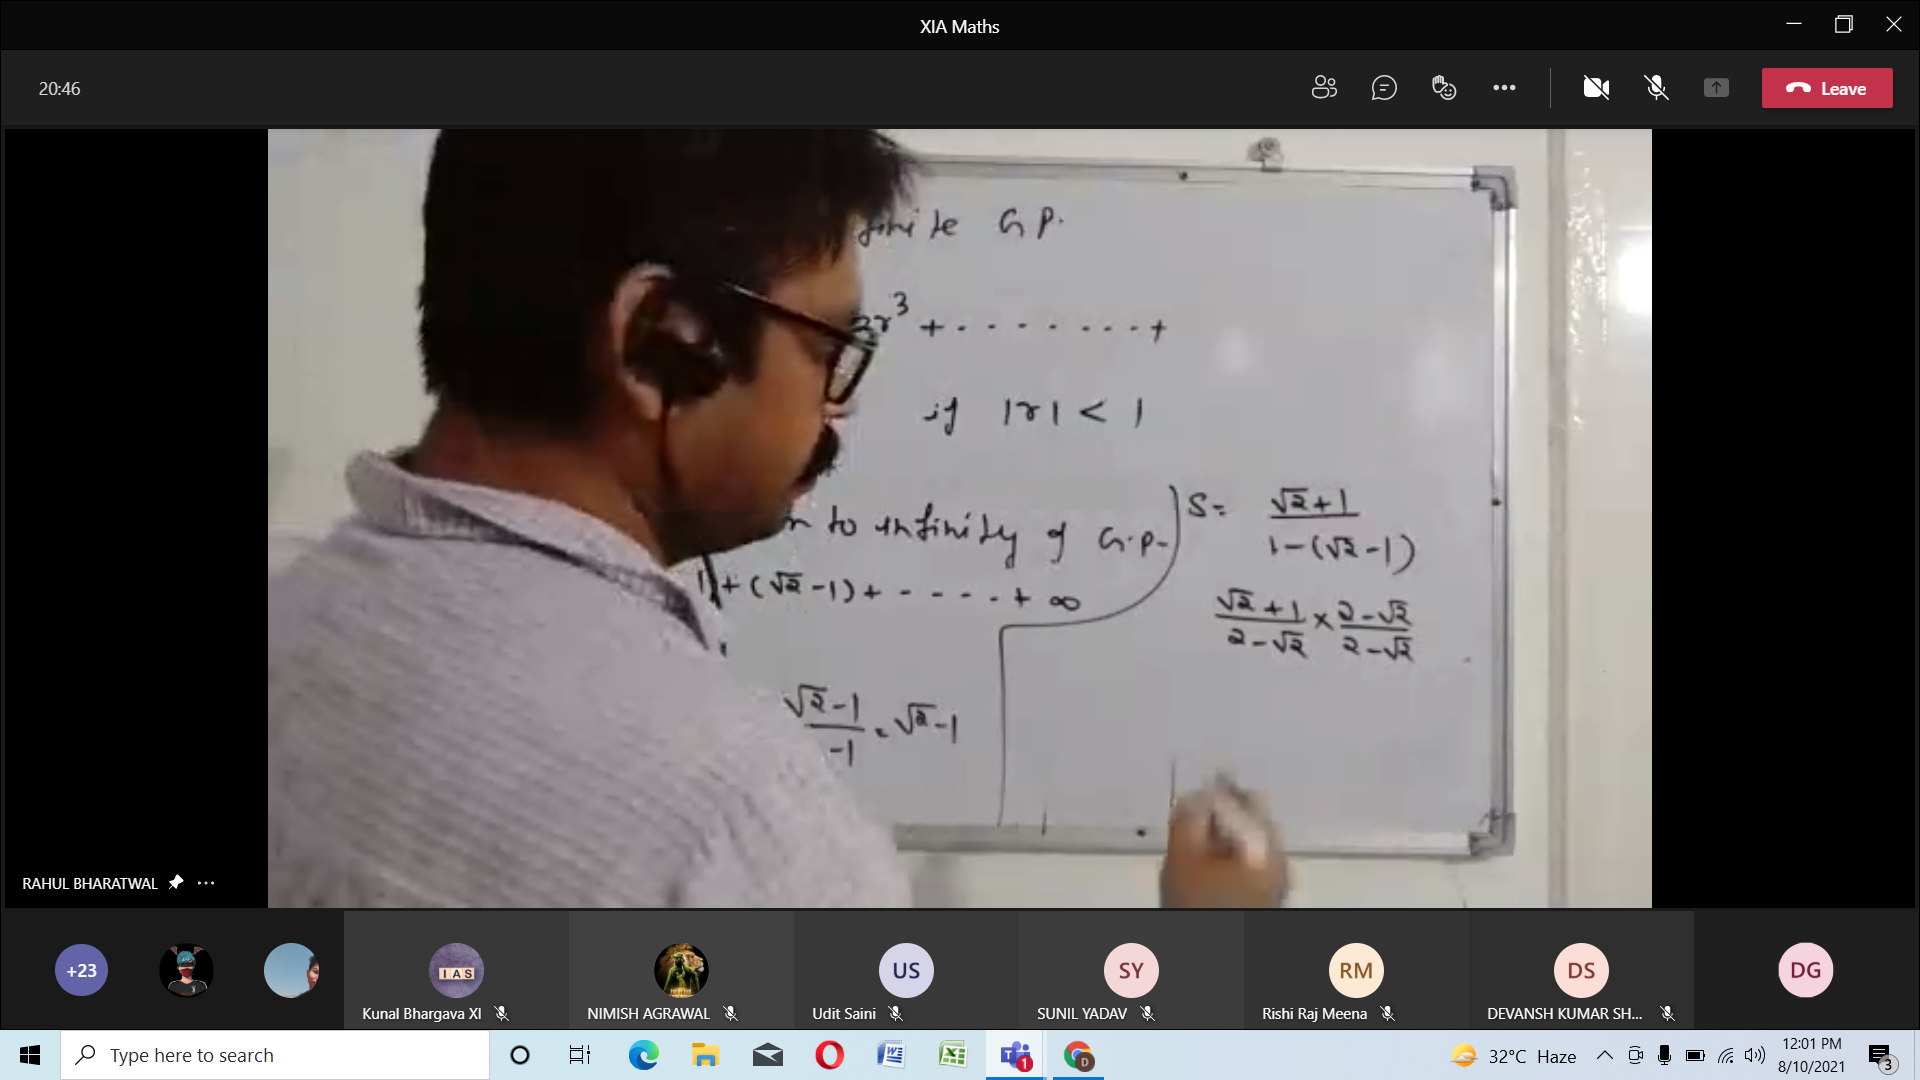 XIA Maths
20:46
Leave
finite G P.
ar³ + . . . . . . . . +
if |r| < 1
to infinity of G.P.
1 + (√2 -1) + - - - - . + ∞
√2 -1
-1
= √2 -1
S = √2 + 1
1 - (√2 - 1)
√2 + 1 × 2 - √2
2 - √2 2 - √2
RAHUL BHARATWAL
+23
IAS
US
SY
RM
DS
DG
Kunal Bhargava XI
NIMISH AGRAWAL
Udit Saini
SUNIL YADAV
Rishi Raj Meena
DEVANSH KUMAR SH...
Type here to search
1
D
32°C Haze
12:01 PM
8/10/2021
3